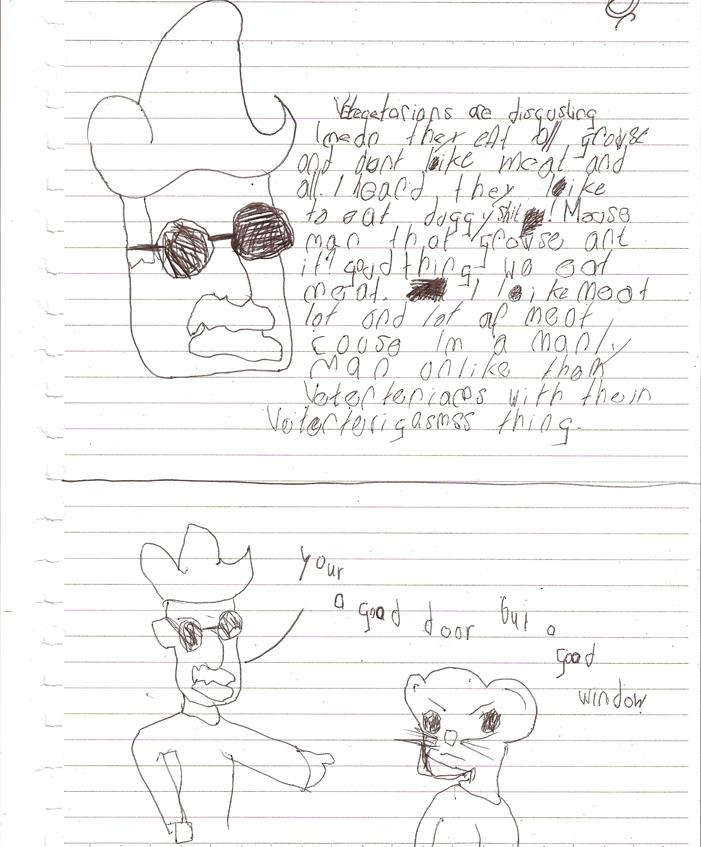 Vetegetarians are disgusting
I mean they eat all grouse
and dont like meat and
all. I heard they like
to eat doggy shit ! Mouse
man that grouse ant
it? good thing we eat
meat. I like meat
lot and lot of meat
couse Im a manly
man unlike them
Veterterians with their
Veterterigasmss thing.
your
a good door but a
good
window